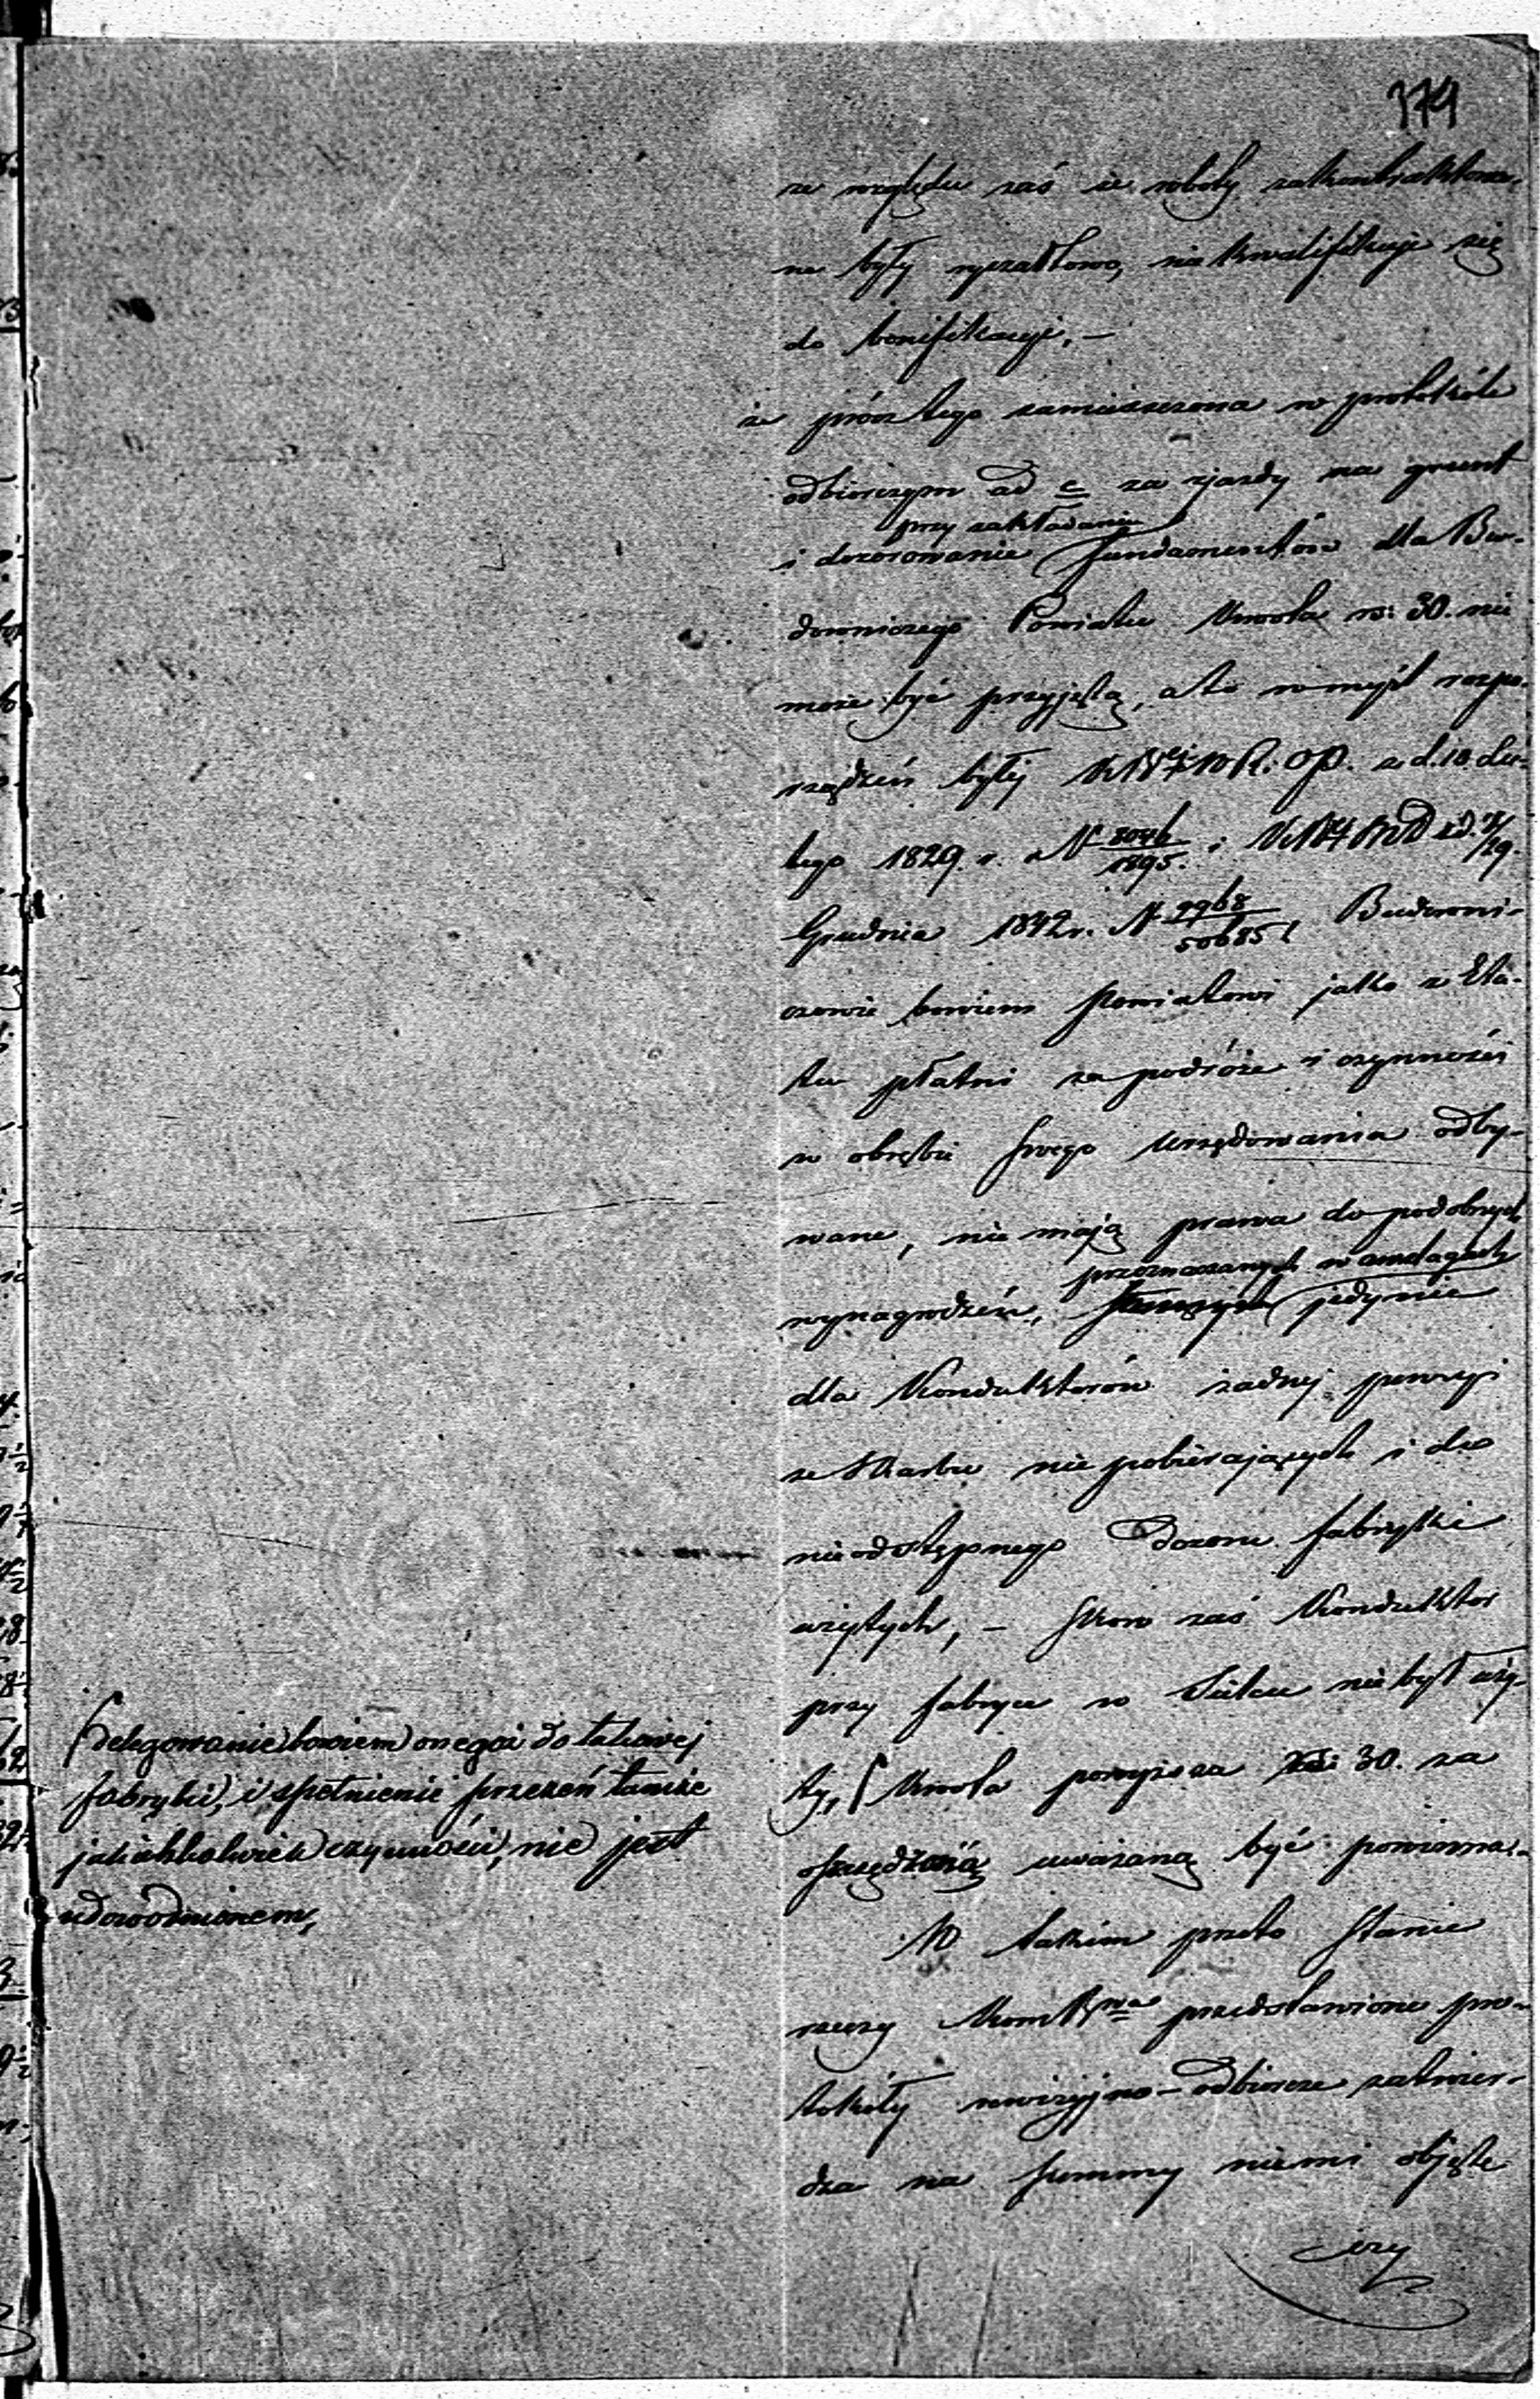 379
ze względu zaś że roboty zakontraktowa-
ne były ryczałtowo, nie kwalifikuje się
do bonifikacyi, –
że prócz tego zamieszczona w protokóle
odbiorczym ad c za zjazdy na grunt
przy zakładaniu
i dozorowanie fundamentów dla Bu-
downiczego Powiatu kwota rs: 30. nie
może być przyjętą, a to w myśl rozpo-
rządzeń byłej z d. 10. Lu-
tego 1829. r. N 1895. i
Grudnia 1842 r. N 9968/50685, Budowni-
czowie bowiem Powiatowi jako z Eta-
tu płatni za podróże i czynności
w obrębie swego urzędowania odby-
wane, nie mają prawa do podobnych
przeznaczanych w anslagach
wynagrodzeń, jedynie
dla Konduktorów żadnej pensyi
ze Skarbu nie pobierających i do
nieodstępnego Dozoru fabryki
użytych, – skoro zaś Konduktor
przy fabryce w Sulcu nie był uży-
ty, kwota powyższa rs: 30. za
oszczędzoną uważaną być powinna.–
W takim przeto stanie
rzeczy KomR przedstawione pro-
tokóły rewizyjno-odbiorcze zatwier-
dza na summy niemi objęte
czy
Delegowanie bowiem onegoż do takowej
fabryki, i spełnienie przezeń tamże
jakichkolwiek czynności, nie jest
udowodnionem,